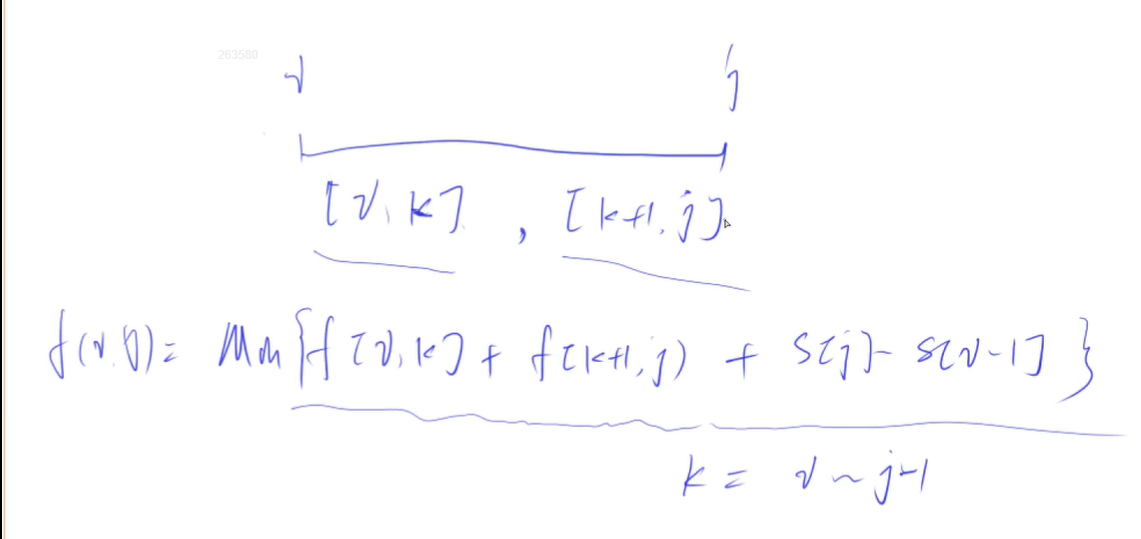 263580
i j
[i, k] , [k+1, j]
f(i, j) = Min{f[i, k] + f[k+1, j) + s[j] - s[i-1]}
k = i ~ j-1